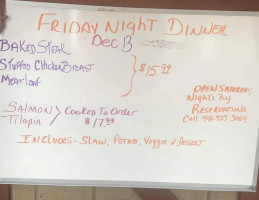 FRIDAY NIGHT DINNER
Dec 13
BAKED STEAK
STUFFED CHICKEN BREAST
MEATLOAF
$15.99
SALMON
TILAPIA
COOKED TO ORDER
$17.99
OPEN SATURDAY
NIGHTS BY
RESERVATIONS
CALL
INCLUDES - SLAW, POTATO, VEGGIE & DESSERT